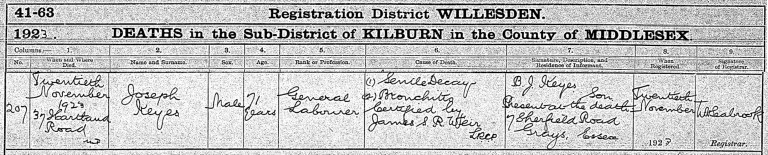 41-63
Registration District WILLESDEN.
1923. DEATHS in the Sub-District of KILBURN in the County of MIDDLESEX.
Columns:— 1. 2. 3. 4. 5. 6. 7. 8. 9.
No. When and Where Died. Name and Surname. Sex. Age. Rank or Profession. Cause of Death. Signature, Description, and Residence of Informant. When Registered. Signature of Registrar.
207
Twentieth
November
1923
37
Road
Joseph
Keyes
Male
71
Years
General
Labourer
(1) Senile Decay
(2) Bronchitis
Certified by
James S. R. Weir
LRCP
B J Keyes Son
Present at the death
7 Sherfield Road
Grays, Essex
Twentieth
November
1923
Registrar.